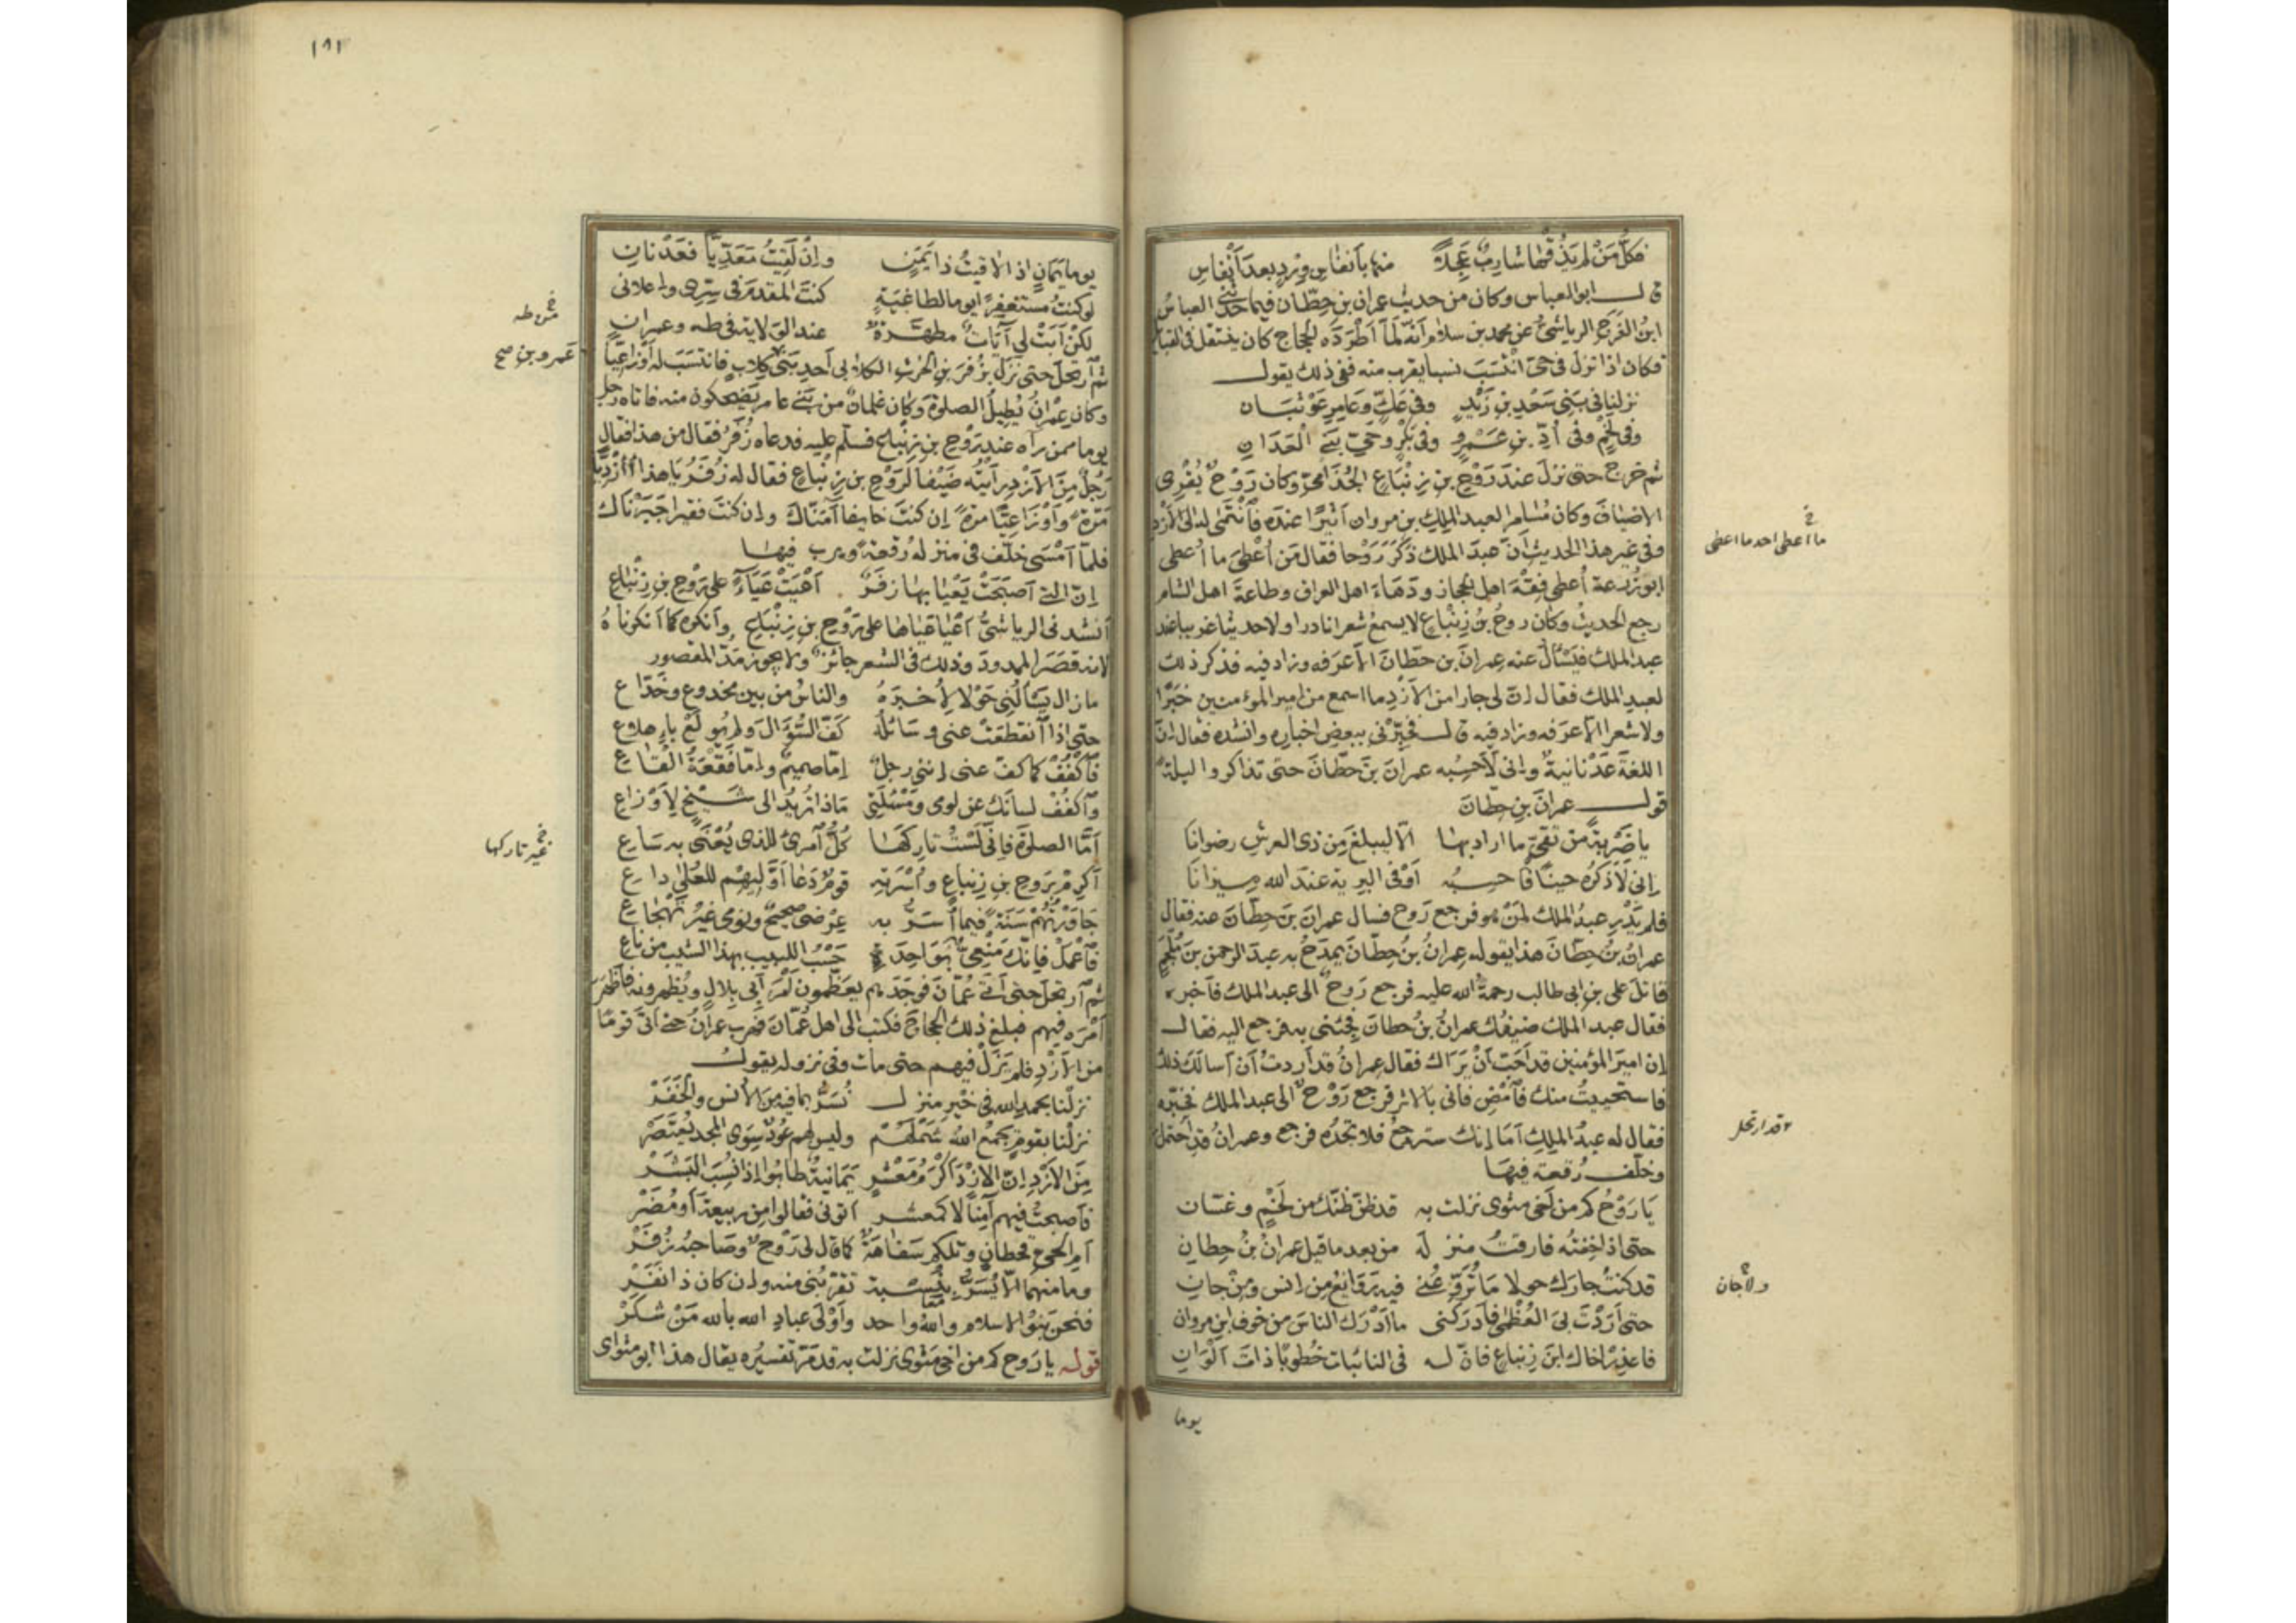 فكلُّ مَنْ لم يَذُقْها شاربٌ عَجِلاً منها بأنفاسٍ وِرْدٍ بعدَ أنْفاسِ
قال ابو العباس وكان من حديث عمران بن حِطّان فيما حدثني العباسُ
ابنُ الفَرَج الرياشيُّ عن محمد بن سلام أنّه لَمّا أَطْرَدَه الحجاج كان ينتقل فى القبائل
فكان اذا نزل فى حيّ انْتَسَبَ نسبا يقرب منه ففى ذلك يقول
نزلنا فى بنى سَعْدِ بن زَيْدٍ وفى عَكٍّ وعامرِ عَوْبَثَانِ
وفى لَخْمٍ وفى أُدَدِ بن عَمْرٍو وفى بَكْرٍ وحَىِّ بَنى الْعَدَانِ
ثم خرج حتى نزل عند رَوْحِ بن زِنْبَاعٍ الجُذَامىّ وكان رَوْحٌ يُقْرِى
الاضيافَ وكان مُسَامِرا لعبد الملك بن مروان أثيرًا عنده فَانْتَمَى له الى الأزْد
وفى غير هذا الحديث أنّ عبدَ الملك ذَكَرَ رَوْحا فقال مَن أُعْطِىَ ما أُعطى
ابو زُرعة أُعطى فِقْهَ اهل الحجاز ودَهَاءَ اهل العراق وطاعةَ اهل الشام
رجع الحديثُ وكان روحُ بنُ زِنْبَاعٍ لا يسمعُ شعرا نادرا ولا حديثا غريبا عند
عبد الملك فيَسْألُ عنه عِمرانَ بن حِطّانَ الّا عَرَفه وزاد فيه فذكر ذلك
لعبد الملك فقال انّ لى جارا من الأزْدِ ما اسمع من امير المؤمنين خبرًا
ولا شعرا الّا عَرَفه وزاد فيه قال فخَبِّرْنى ببعض اخباره وانشده فقال انّ
اللغةَ عَدْنانيةٌ وانى لَأحسِبُه عمرانَ بن حِطّانَ حتى تذاكروا ليلةً
قول عمرانَ بنِ حِطّانَ
يا ضَرْبةً من تَقِىٍّ ما اراد بها الّا ليبلغَ مِن ذى العرش رضوانَا
إنى لَأذكُرُه حينًا فَأحسِبُه أوْفَى البريةِ عندَ الله ميزانَا
فلم يَدْرِ عبدُ الملك لمَنْ هو فرجع رَوح فسال عمرانَ بنَ حِطّانَ عنه فقال
عمرانُ بنُ حِطّانَ هذا يقوله عِمرانُ بنُ حِطّانَ يمدحُ به عبدَ الرحمن بنَ مُلْجَم
قاتلَ على بن ابى طالب رحمةُ الله عليه فرجع رَوحٌ الى عبد الملك فأخبره
فقال عبد الملك ضيفُك عمرانُ بنُ حطانَ فجِئنى به فرجع اليه فقال
إن اميرَ المؤمنين قد احَبَّ أنْ يَرَاك فقال عمرانُ قد أردتُ أن أسالك ذلك
فاستحييتُ منك فَامْضِ فانى بالاثر فرجع رَوْحٌ الى عبد الملك فخبّره
فقال له عبدُ الملك أمَا إنك سترجعُ فلا تجدُه فرجع وعمرانُ قد احتمل
وخلّف رُقعة فيها
يا رَوْحُ كم من أخى مثوى نزلت به قد ظنّ ظنّك من لَخْمٍ وغسّان
حتى اذا خِفتُه فارقتُ منزله من بعد ما قيل عمرانُ بنُ حِطانِ
قد كنتُ جارك حولا مَا تُرَوِّعُنى فيه رَوائعُ من إنس ومِنْ جانِ
حتى أرَدْتَ بىَ العُظْمَى فأدركنى ما أدْرَك الناسَ من خوف ابن مروان
فاعذِرْ اخاك ابنَ زنباعٍ فانّ له فى النائبات خُطوبًا ذاتَ ألْوَانِ
يوما
خ
ما أعطى احد ما اعطى
وقد ارتحل
ولا جان
١٨١
يوما يَمَانٍ اذا لاقيتُ ذا يَمَنٍ وانْ لَقِيتُ مَعَدِّيّاً فعَدْنانِى
لو كنتُ مستغفِرًا يوما لطاغيَةٍ كنتَ المقدمَ فى سِرِّى واعلانى
لكنْ أبَتْ لى آياتٌ مطهّرةٌ عند الوَلاية فى طه وعمرانِ
ثم ارتحلَ حتى نَزَلَ بزُفَرَ بنِ الحرث الكلابى أحدِ بَنى كِلاب فانتسَبَ له أوْزاعيّاً
وكان عِمْرانُ يُطِيلُ الصلوةَ وكان غلمانٌ من بَنى عامر يَضْحكون منه فاتاه رجل
يوما ممن رآه عند رَوْحِ بن زِنْبَاع فسلّم عليه فدعاه زُفَرُ فقال من هذا فقال
رَجُلٌ مِنَ الأزدِ رأيتُه ضَيْفا لرَوْح بن زِنْبَاعٍ فقال له زُفَرُ يا هذا أَأَزْدِيًّا
مَرّةً وأوْزَاعيًّا مرةً إن كنتَ خايفا آمَنّاكَ وان كنتَ فقيرا جَبَرْناك
فلمّا أمْسَى خلّف فى منزله رُقعةً وهرب فيها
إنّ التى أصبَحَتْ يَعْيَا بها زُفَرٌ أعْيَتْ عَيَاءً على رَوْحِ بنِ زِنْبَاعِ
أنشدنى الرياشىُّ أعْيَا عَيَاها على رَوْحِ بن زِنْبَاعِ وأنكره كما أنكرناهُ
لانه قصَرَ الممدودَ وذلك فى الشعر جائزٌ ولا يجوز مَدّ المقصور
ما زال يَسْألُنى حَوْلا لِأُخْبِرَهُ والناسُ من بين مخدوعٍ وخَدّاعِ
حتى اذا انقطعَتْ عنى وسَائلُه كَفَّ السُّؤالَ ولم يُولَعْ بإهلاعِ
فَاكْفُفْ كما كفّ عنى إننى رجلٌ إمّا صميمٌ وإمّا فَقْعَةُ القَاعِ
وَاكفُفْ لسانَك عن لومى ومَسْئَلَتى مَاذا تُريدُ الى شَيْخٍ لِأوْزاعِ
أمّا الصلوةَ فإنّى لَسْتُ تارِكَهَا كُلُّ امرئٍ للذى يُعْنَى به سَاعِ
أكرِمْ برَوحِ بنِ زِنباعٍ وأُسْرَتِه قومٌ دَعَا أوَّلِيهم للعُلَى داعِ
جَاوَرْتُهُمْ سَنَةً فيما أُسَرُّ به عِرْضى صحيحٌ ونومى غيرُ تَهْجاعِ
فاعْمَلْ فإنّك مَنْعِىٌّ بواحِدَةٍ حَسْبُ اللبيب بهذا الشيب من ناعِ
ثم ارتحلَ حتى أتى عُمَانَ فوجَدَهم يعَظِّمون أمْرَ أبى بِلالٍ ويُظهرونه فأظهَرَ
أمْرَه فيهم فبلغ ذلك الحجاجَ فكتب الى اهل عُمَانَ فهرب عمرانُ حتى أتَى قومًا
من الأزدِ فلم يَزَلْ فيهم حتى مات وفى نزوله يقول
نزلْنا بحمد الله فى خَيْرِ منزل نُسَرُّ بما فيه من الأنس والخَفَرْ
نزلْنا بقومٍ يجمعُ الله شَملَهُم وليس لهم عُودٌ سِوَى المجد يُعتصَرْ
مِنَ الأزْدِ إنّ الازْدَ أكرمُ مَعْشرٍ يَمَانيةٌ طابُوا إذا نُسِبَ البَشَرْ
فأصبحتُ فيهم آمِنًا لا كمعشرٍ أتونى فقالوا من ربيعةَ أو مُضَرْ
أمِ الحىِّ قحطانٍ وتلكم سَفاهَةٌ كما قال لى رَوْحٌ وصَاحبُه زُفَرْ
وما منهما الّا يُسَرُّ بنِسْبة تقرّبُنى منه وإن كان ذا نَفَرْ
فنحن بَنُو الاسلام والله واحد وأوْلَى عبادِ الله بالله مَنْ شكَرْ
قوله يا رَوح كم من اخى مَثوى نزلت به قد مَرّ تفسيرُه يقال هذا ابو مثواى
عمرو بن صح
خ
غير تاركها